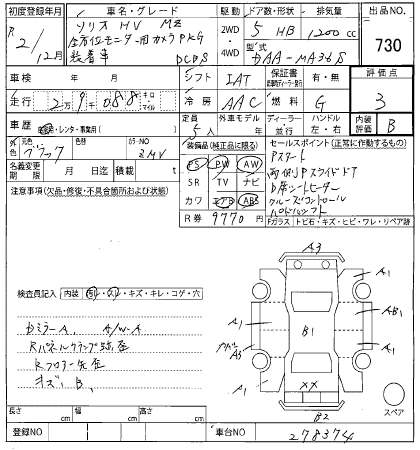 初度登録年月
車名・グレード
駆動
ドア数・形状
排気量
出品NO
R 2/12月
ソリオ HV MZ
全方位モニター用カメラPKG
装着車
DCBS
2WD
4WD
5 HB
1200 cc
型式
DAA-MA36S
730
車検 年 月
シフト
IAT
保証書
有・無
評価点
3
走行
2万9千088
キロ
マイル
冷房
AAC
燃料
G
車歴
自家用・レンタ・事業用
定員
5人
外車モデル
年
ディーラー
並行
ハンドル
左・右
内装
評価
B
外色
元色
ブラック
色替
カラーNO
ZMV
装備品(純正品に限る)
セールスポイント(正常に作動するもの)
名義変更
期限
月 日迄
積載
t
PS
PW
AW
SR
TV
ナビ
カワ
エアB
ABS
R券
9770円
Pスタート
両側Pスライドドア
D席シートヒーター
クルーズコントロール
パドルシフト
注意事項(欠品・修復・不具合箇所および状態)
Fガラス
トビ石・キズ・ヒビ・ワレ・リペア跡
検査員記入
内装
汚レ・スレ・キズ・キレ・コゲ・穴
DミラーA
A/W-A
Rパネルクランプ跡歪
Rフロアー先歪
キズ B
A3
A1
A1
AB1
A1
B1
A3
A1
A1
A1
XX
B2
スペア
長さ
cm
幅
cm
高さ
cm
登録NO
車台NO
278374